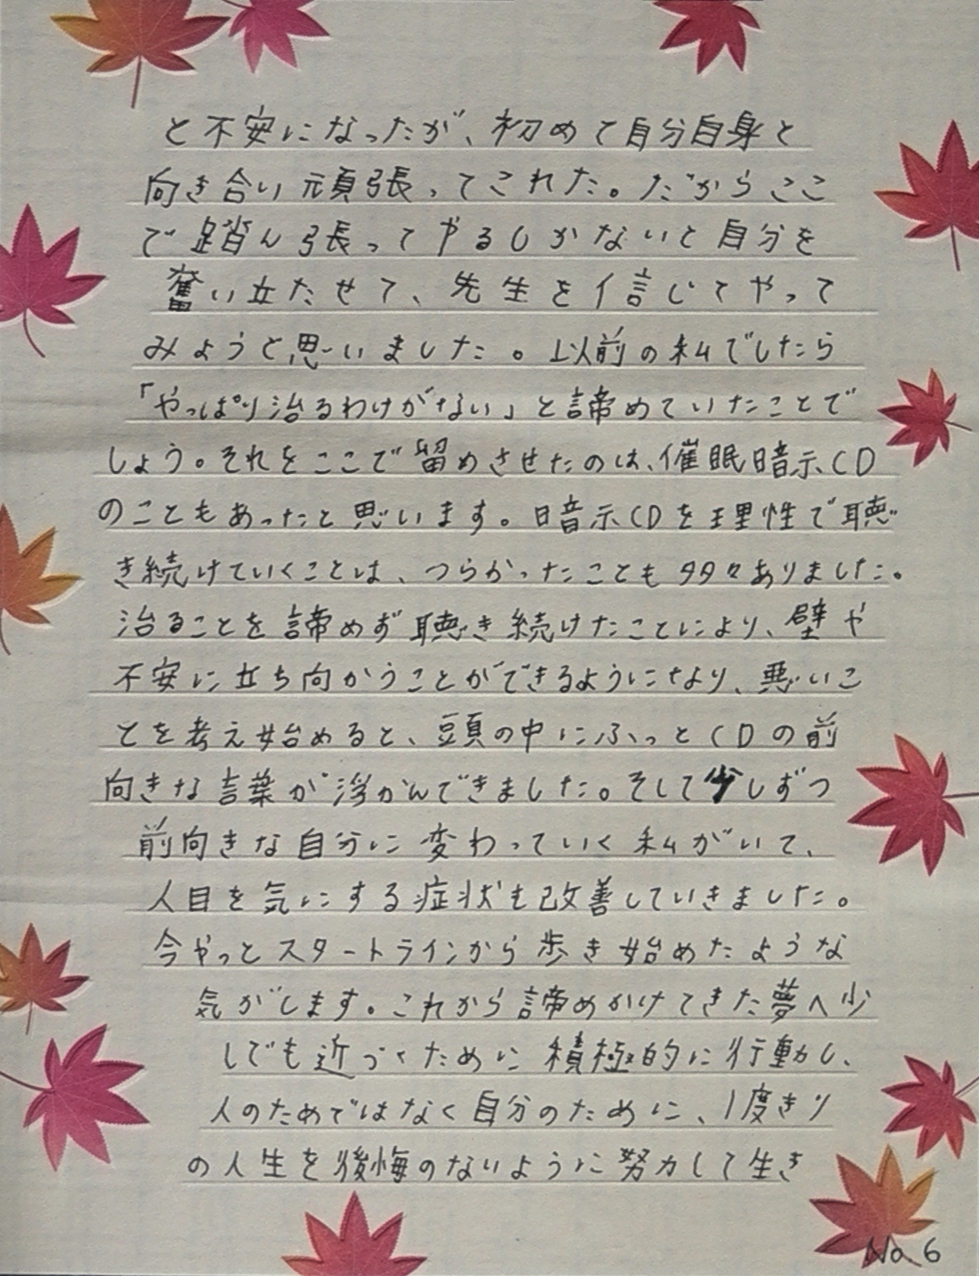 と不安になったが、初めて自分自身と
向き合い頑張ってこれた。だからここ
で踏ん張ってやるしかないと自分を
奮い立たせて、先生を信じてやって
みようと思いました。以前の私でしたら
「やっぱり治るわけがない」と諦めていたことで
しょう。それをここで留めさせたのは、催眠暗示CD
のこともあったと思います。暗示CDを理性で聴
き続けていくことは、つらかったことも多々ありました。
治ることを諦めず聴き続けたことにより、壁や
不安に立ち向かうことができるようになり、悪いこ
とを考え始めると、頭の中にふっとCDの前
向きな言葉が浮かんできました。そして少しずつ
前向きな自分に変わっていく私がいて、
人目を気にする症状も改善していきました。
今やっとスタートラインから歩き始めたような
気がします。これから諦めかけてきた夢へ少
しでも近づくために積極的に行動し、
人のためではなく自分のために、1度きり
の人生を後悔のないように努力して生き
No.6